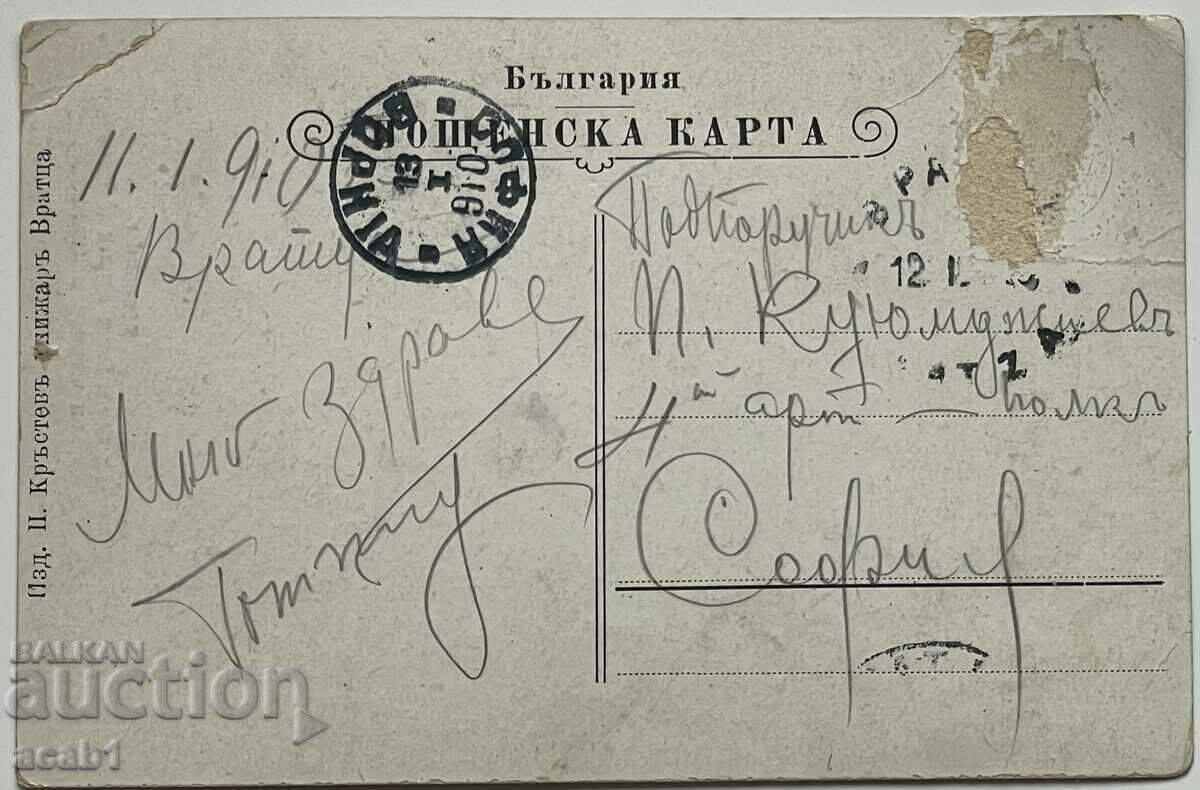 България
ПОЩЕНСКА КАРТА
Изд. П. Кръстевъ книжаръ Вратца
11. 1. 910
Враца
Много Здраве
СОФИЯ
13
I
910
Подпоручикъ
П. Куюмджиевъ
4ти арт — полкъ
София
РА
12 I
BALKAN
auction
acab1